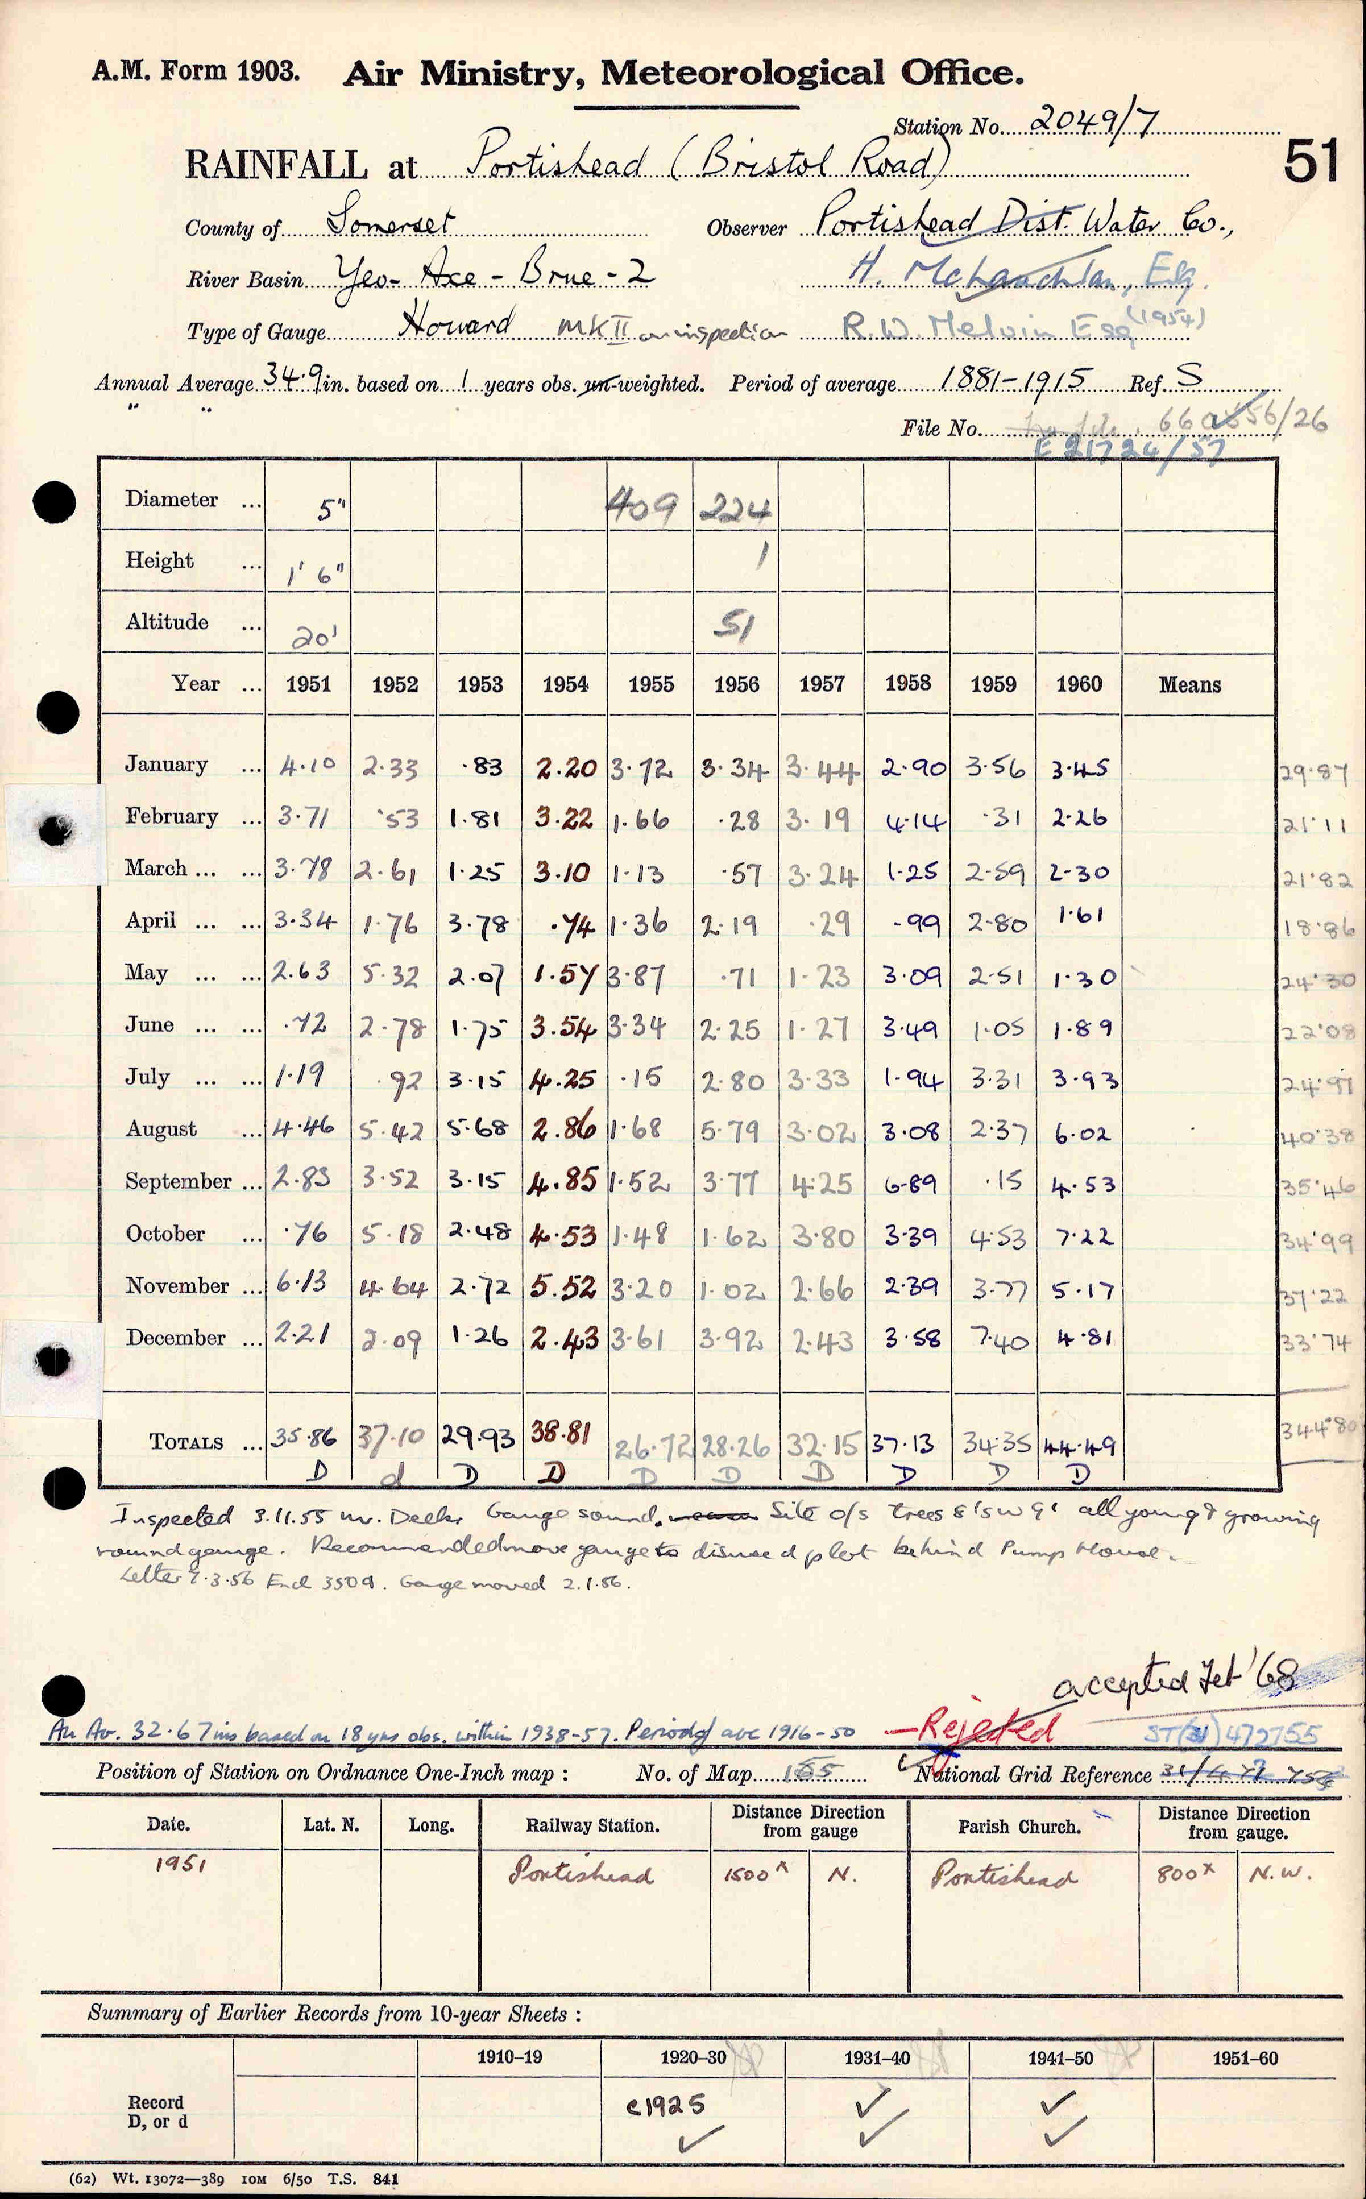 A.M. Form 1903. Air Ministry, Meteorological Office.
Station No. 2049/7
51
RAINFALL at Portishead (Bristol Road)
County of Somerset Observer Portishead Dist. Water Co.,
River Basin Yeo - Axe - Brue - 2 H. McLauchlan, Esq.
Type of Gauge Howard MK II on inspection R.W. Melvin Esq (1954)
Annual Average 34.9 in. based on 1 years obs. un-weighted. Period of average 1881-1915 Ref. S
" "
File No. 56/26
E 21724/57
Diameter ... 5" 409 224
Height ... 1' 6" 1
Altitude ... 20' 51
Year ... 1951 1952 1953 1954 1955 1956 1957 1958 1959 1960 Means
January ... 4.10 2.33 .83 2.20 3.72 3.34 3.44 2.90 3.56 3.45 29.87
February ... 3.71 .53 1.81 3.22 1.66 .28 3.19 4.14 .31 2.26 21.11
March ... ... 3.78 2.61 1.25 3.10 1.13 .57 3.24 1.25 2.59 2.30 21.82
April ... ... 3.34 1.76 3.78 .74 1.36 2.19 .29 .99 2.80 1.61 18.86
May ... ... 2.63 5.32 2.07 1.57 3.87 .71 1.23 3.09 2.51 1.30 24.30
June ... ... .72 2.78 1.75 3.54 3.34 2.25 1.27 3.49 1.05 1.89 22.08
July ... ... 1.19 .92 3.15 4.25 .15 2.80 3.33 1.94 3.31 3.93 24.97
August ... 4.46 5.42 5.68 2.86 1.68 5.79 3.02 3.08 2.37 6.02 40.38
September ... 2.83 3.52 3.15 4.85 1.52 3.77 4.25 6.89 .15 4.53 35.46
October ... .76 5.18 2.48 4.53 1.48 1.62 3.80 3.39 4.53 7.22 34.99
November ... 6.13 4.64 2.72 5.52 3.20 1.02 2.66 2.39 3.77 5.17 37.22
December ... 2.21 2.09 1.26 2.43 3.61 3.92 2.43 3.58 7.40 4.81 33.74
TOTALS ... 35.86 37.10 29.93 38.81 26.72 28.26 32.15 37.13 34.35 44.49 344.80
D d D D D D D D D D
Inspected 3.11.55 Mr. Gauge sound. Site o/s trees 8' SW 9' all young & growing
round gauge. Recommended move gauge to disused plot behind Pump House.
Letter 2.3.56 Encl 350A. Gauge moved 2.1.56.
accepted Feb '68
An Av. 32.67 ins based on 18 yrs obs. within 1938-57. Period of ave 1916-50 - Rejected ST(31) 472755
Position of Station on Ordnance One-Inch map : No. of Map 155 National Grid Reference
Date. Lat. N. Long. Railway Station. Distance Direction from gauge Parish Church. Distance Direction from gauge.
1951 Portishead 1500x N. Portishead 800x N.W.
Summary of Earlier Records from 10-year Sheets :
1910–19 1920–30 1931–40 1941–50 1951–60
Record
D, or d
c1925 ✓ ✓
✓ ✓ ✓
(62) Wt. 13072—389 IOM 6/50 T.S. 841